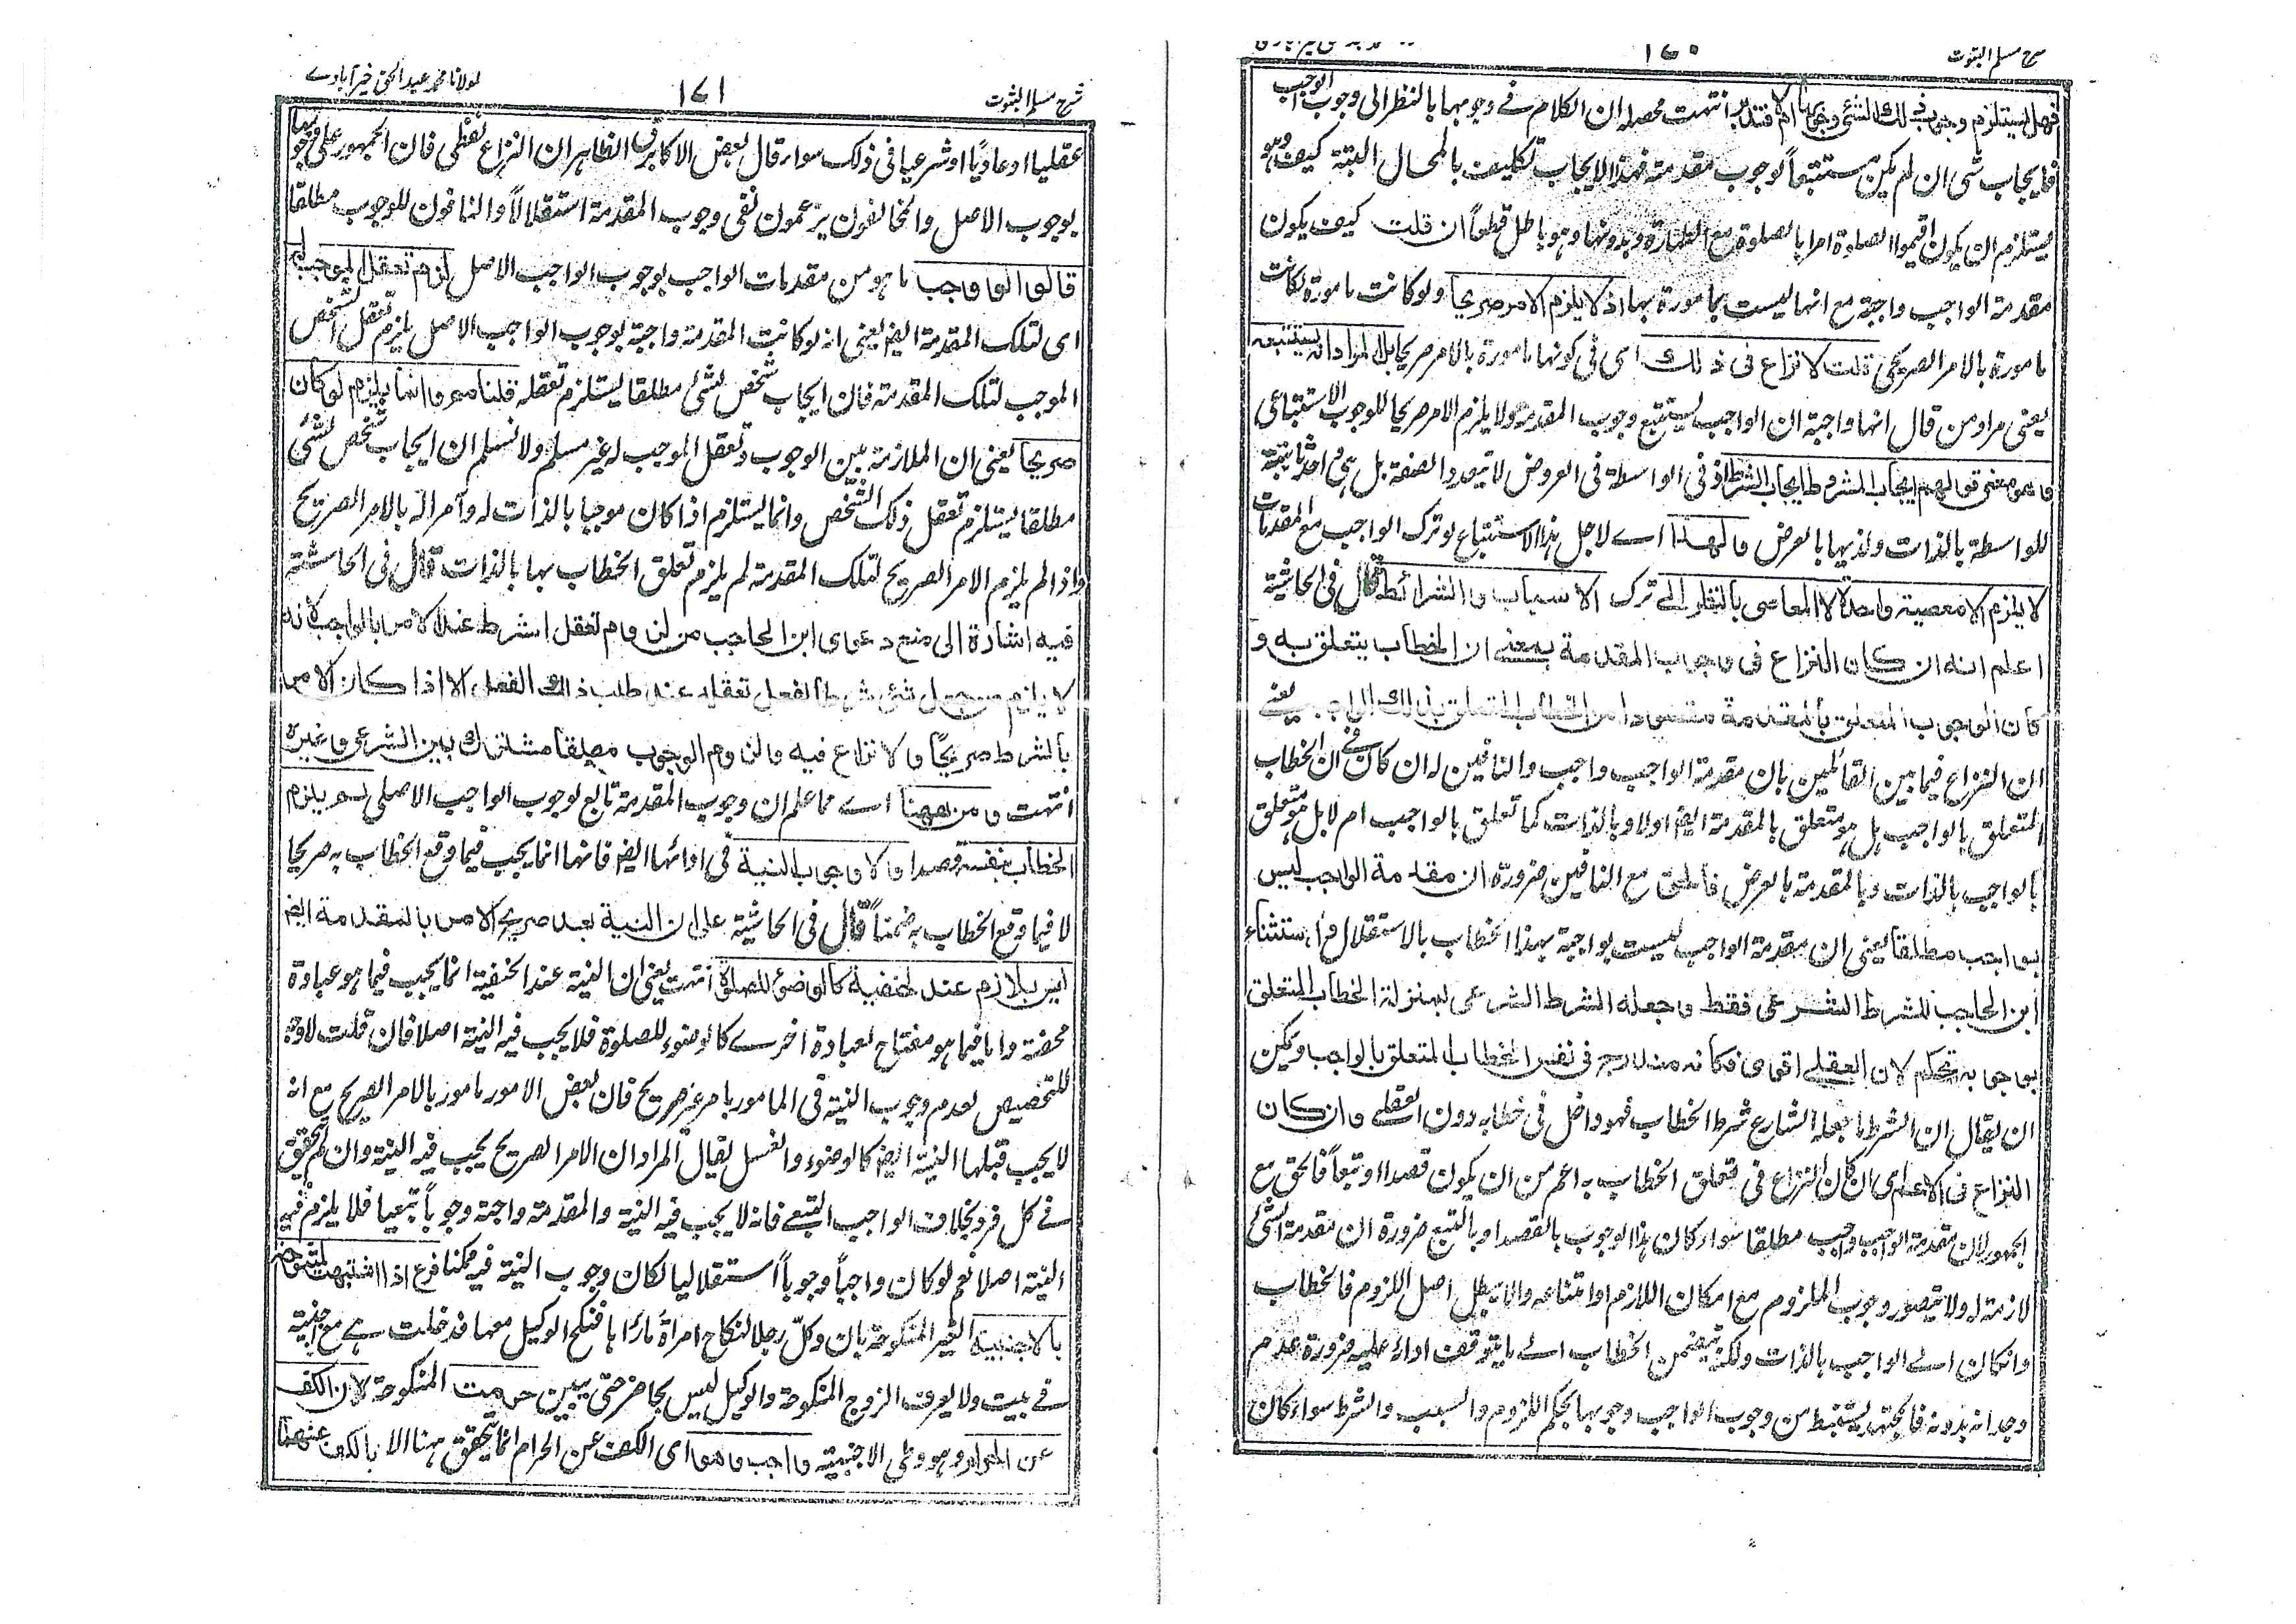 شرح مسلم الثبوت
١٧٠
فهل يستلزم وجوبه ذلك الشئ وجوبها ام لا فتدبر انتهت محصله ان الكلام فے وجوبها بالنظر الى وجوب الواجب
فايجاب شئ ان لم يكن مستتبعاً لوجوب مقدمته فهذا الايجاب تكليف بالمحال البتة كيف وهو
يستلزم ان يكون اقيموا الصلوة امرا بالصلوة مع الطهارة وبدونها وهو باطل قطعاً ان قلت كيف يكون
مقدمة الواجب واجبة مع انها ليست بمامورة بها اذ لا يلزم الامر صريحا ولو كانت مامورة لكانت
مامورة بالامر الصريحى قلت لا نزاع فى ذلك اى فى كونها مامورة بالامر صريحا بل المراد انه يستتبعه
يعنى مراد من قال انها واجبة ان الواجب يستتبع وجوب المقدمة ولا يلزم الامر صريحا للوجوب الاستتباعى
وهو معنى قولهم ايجاب المشروط ايجاب الشرط اذ فى الواسطة فى العروض لا تتعدد الصفة بل هى واحدة ثابتة
للواسطة بالذات ولذيها بالعرض ولهذا اے لاجل هذا الاستتباع لو ترك الواجب مع المقدمات
لا يلزم الا معصية واحدة لا المعاصى بالنظر الى ترك الاسباب والشرائط قال فى الحاشية
اعلم انه ان كان النزاع فى وجوب المقدمة بمعنى ان الخطاب يتعلق به و
كان الوجوب المتعلق بالمقدمة مقصودا من الخطاب المتعلق بذلك الواجب يعنے
ان النزاع فيما بين القائلين بان مقدمة الواجب واجب والنافين له ان كان فے ان الخطاب
المتعلق بالواجب هل هو متعلق بالمقدمة ايضا اولا وبالذات كما تعلق بالواجب ام لا بل هو متعلق
بالواجب بالذات وبالمقدمة بالعرض فالحق مع النافين ضرورة ان مقدمة الواجب ليس
بواجب مطلقا يعنى ان مقدمة الواجب ليست بواجبة بهذا الخطاب بالاستقلال واستثناء
ابن الحاجب للشرط الشرعى فقط وجعله الشرط الشرعى بمنزلة الخطاب المتعلق
بوجوبه تحكم لان العقلے اقوى فكانه مندرج فى نفس الخطاب المتعلق بالواجب ويمكن
ان يقال ان الشرط ما جعله الشارع شرط الخطاب فهو داخل فى خطابه دون العقلے وان كان
النزاع فى الاعم اى ان كان النزاع فى تعلق الخطاب به اعم من ان يكون قصدا او تبعاً فالحق مع
الجمهور لان مقدمة الواجب واجب مطلقا سواء كان هذا الوجوب بالقصد او بالتبع ضرورة ان مقدمة الشئ
لازمة له ولا يتصور وجوب الملزوم مع امكان اللازم او امتناعه والا يبطل اصل اللزوم فالخطاب
وانكان اے الواجب بالذات ولكنه يتضمن الخطاب اے ما يتوقف اداءه عليه ضرورة عدم
وجدانه بدونه فالمجتهد يستنبط من وجوب الواجب وجوبها بحكم اللزوم والسبب والشرط سواء كان
شرح مسلم الثبوت
١٧١
لمولانا محمد عبد الحق خيرآبادے
عقليا او عاديًا او شرعيا فى ذلك سواء قال بعض الاكابر ان الظاهر ان النزاع لفظى فان الجمهور على وجوبها
بوجوب الاصل والمخالفون يزعمون نفى وجوب المقدمة استقلالاً والنافون للوجوب مطلقا
قالوا لو وجب ما هو من مقدمات الواجب بوجوب الواجب الاصل لزم تعقل الموجب له
اى لتلك المقدمة ايضا يعنى انه لو كانت المقدمة واجبة بوجوب الواجب الاصل يلزم تعقل الشخص
الموجب لتلك المقدمة فان ايجاب شخص لشئ مطلقا يستلزم تعقله قلنا ممنوع وانما يلزم لو كان
صريحا يعنى ان الملازمة بين الوجوب وتعقل الموجب له غير مسلم ولا نسلم ان ايجاب شخص لشئ
مطلقا يستلزم تعقل ذلك الشخص وانما يستلزم اذا كان موجبا بالذات له وآمرا له بالامر الصريح
واذا لم يلزم الامر الصريح لتلك المقدمة لم يلزم تعلق الخطاب بها بالذات قال فى الحاشية
فيه اشارة الى منع دعوى ابن الحاجب من لزوم تعقل الشرط عند الامر بالواجب لانه
لا يلزم من جعل شئ شرطا لفعل تعقله عند طلب ذلك الفعل الا اذا كان الامر
بالشرط صريحًا ولا نزاع فيه ولزوم الوجوب مطلقا مشترك بين الشرعى وغيره
انتهت ومن ههنا اے مما علم ان وجوب المقدمة تابع لوجوب الواجب الاصلى لم يلزم
الخطاب بنفسه قصدا ولا وجوب النية فى ادائها ايضا فانها انما يجب فيما وقع الخطاب به صريحا
لا فيما وقع الخطاب به ضمناً قال فى الحاشية على ان النية بعد صريح الامر بالمقدمة ايضا
ليس بلازم عند الحنفية كالوضوء للصلوة انتهت يعنى ان النية عند الحنفية انما يجب فيما هو عبادة
محضة واما فيما هو مفتاح لعبادة اخرے كالوضوء للصلوة فلا يجب فيه النية اصلا فان قلت لا وجه
للتخصيص لعدم وجوب النية فى المامور بامر غير صريح فان بعض الامور مامور بالامر الصريح مع انه
لا يجب قبلها النية ايضا كالوضوء والغسل يقال المراد ان الامر الصريح يجب فيه النية وان لم يتحقق
فے كل فرد بخلاف الواجب التبعے فانه لا يجب فيه النية والمقدمة واجبة وجوباً تبعيا فلا يلزم فيها
النية اصلا نعم لو كان واجباً وجوباً استقلاليا لكان وجوب النية فيه ممكنا فرع اذا اشتبهت المنكوحة
بالاجنبية الغير المنكوحة بان وكّل رجلا لنكاح امرأة ما رءاها فنكح الوكيل معها فدخلت هے مع اجنبية
فے بيت ولا يعرف الزوج المنكوحة والوكيل ليس بحاضر حتى يبين حرمت المنكوحة لان الكف
عن الحرام وهو وطى الاجنبية واجب وهو اى الكف عن الحرام انما يتحقق ههنا الا بالكف عنهما